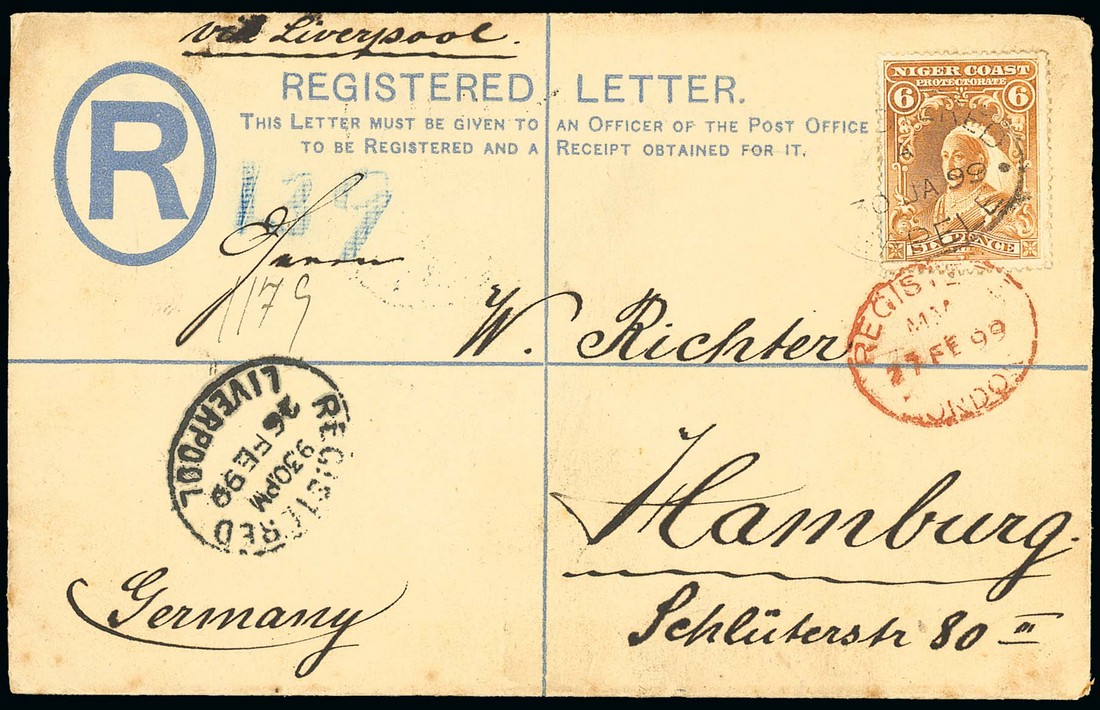 via Liverpool.
R
REGISTERED LETTER.
THIS LETTER MUST BE GIVEN TO AN OFFICER OF THE POST OFFICE
TO BE REGISTERED AND A RECEIPT OBTAINED FOR IT.
NIGER COAST
PROTECTORATE
6 6
SIX PENCE
30 JA 99
129
Herrn
1179
W. Richter
REGISTE
27 FE 99
ONDO
REGISTERED
930PM
26 FE 99
LIVERPOOL
Hamburg.
Germany
Schlüterstr 80 III